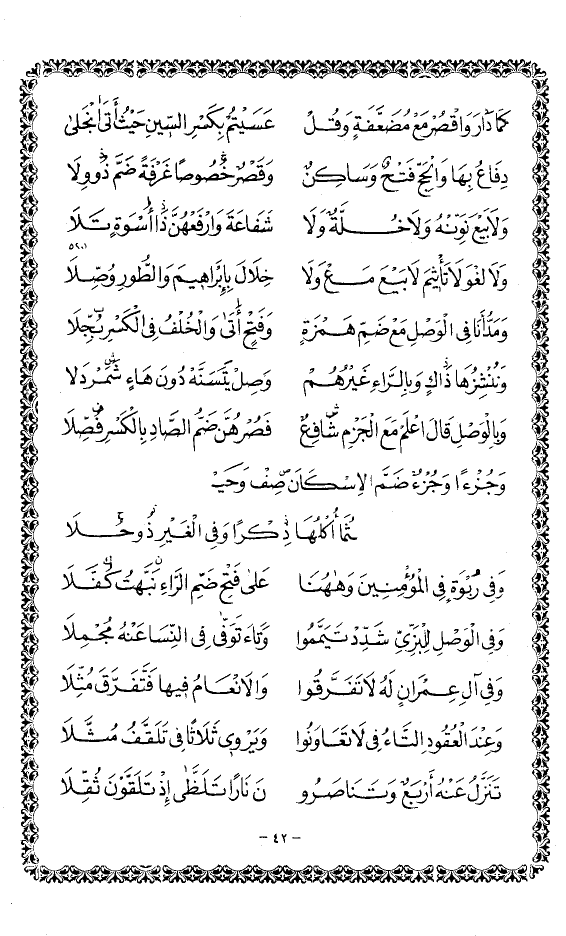 كَمَا دَارَ وَاقْصُرْ مَعْ مُضَعَّفَةٍ وَقُلْ عَسَيْتُمْ بِكَسْرِ السِّينِ حَيْثُ أَتَى انْجَلَى
دِفَاعُ بِهَا وَالْحَجِّ فَتْحٌ وَسَاكِنٌ وَقَصْرٌ خُصُوصًا غَرْفَةً ضَمَّ ذُو وِلَا
وَلَا بَيْعَ نَوِّنْهُ وَلَا خُلَّةٌ وَلَا شَفَاعَةَ وَارْفَعْهُنَّ ذَا أُسْوَةٍ تَلَا
وَلَا لَغْوَ لَا تَأْثِيمَ لَا بَيْعَ مَعْ وَلَا خِلَالَ بِإِبْرَاهِيمَ وَالطُّورِ وُصِّلَا
وَمَدُّ أَنَا فِي الْوَصْلِ مَعْ ضَمِّ هَمْزَةٍ وَفَتْحٍ أَتَى وَالْخُلْفُ فِي الْكَسْرِ بُجِّلَا
وَنُنْشِزُهَا ذَاكٍ وَبِالرَّاءِ غَيْرُهُمْ وَصِلْ يَتَسَنَّهْ دُونَ هَاءٍ شَمَرْدَلَا
وَبِالْوَصْلِ قَالَ اعْلَمْ مَعَ الْجَزْمِ شَافِعٌ فَصُرْهُنَّ ضَمُّ الصَّادِ بِالْكَسْرِ فُصِّلَا
وَجُزْءًا وَجُزْءٌ ضَمَّ الِاسْكَانَ صِفْ وَحَيْـ
ـثُمَا أُكْلُهَا ذِكْرًا وَفِي الْغَيْرِ ذُو حُلَا
وَفِي رُبْوَةٍ فِي الْمُؤْمِنِينَ وَهَهُنَا عَلَى فَتْحِ ضَمِّ الرَّاءِ نَبَّهْتُ كُفَّلَا
وَفِي الْوَصْلِ لِلْبَزِّيِّ شَدِّدْ تَيَمَّمُوا وَتَاءَ تَوَفَّى فِي النِّسَا عَنْهُ مُجْمِلَا
وَفِي آلِ عِمْرَانٍ لَهُ لَا تَفَرَّقُوا وَالْأَنْعَامُ فِيهَا فَتَفَرَّقَ مُثِّلَا
وَعِنْدَ الْعُقُودِ التَّاءُ فِي لَا تَعَاوَنُوا وَيَرْوِي ثَلَاثًا فِي تَلَقَّفُ مُثَّلَا
تَنَزَّلُ عَنْهُ أَرْبَعٌ وَتَنَاصَرُو نَ نَارًا تَلَظَّى إِذْ تَلَقَّوْنَ ثُقِّلَا
- ٤٢ -